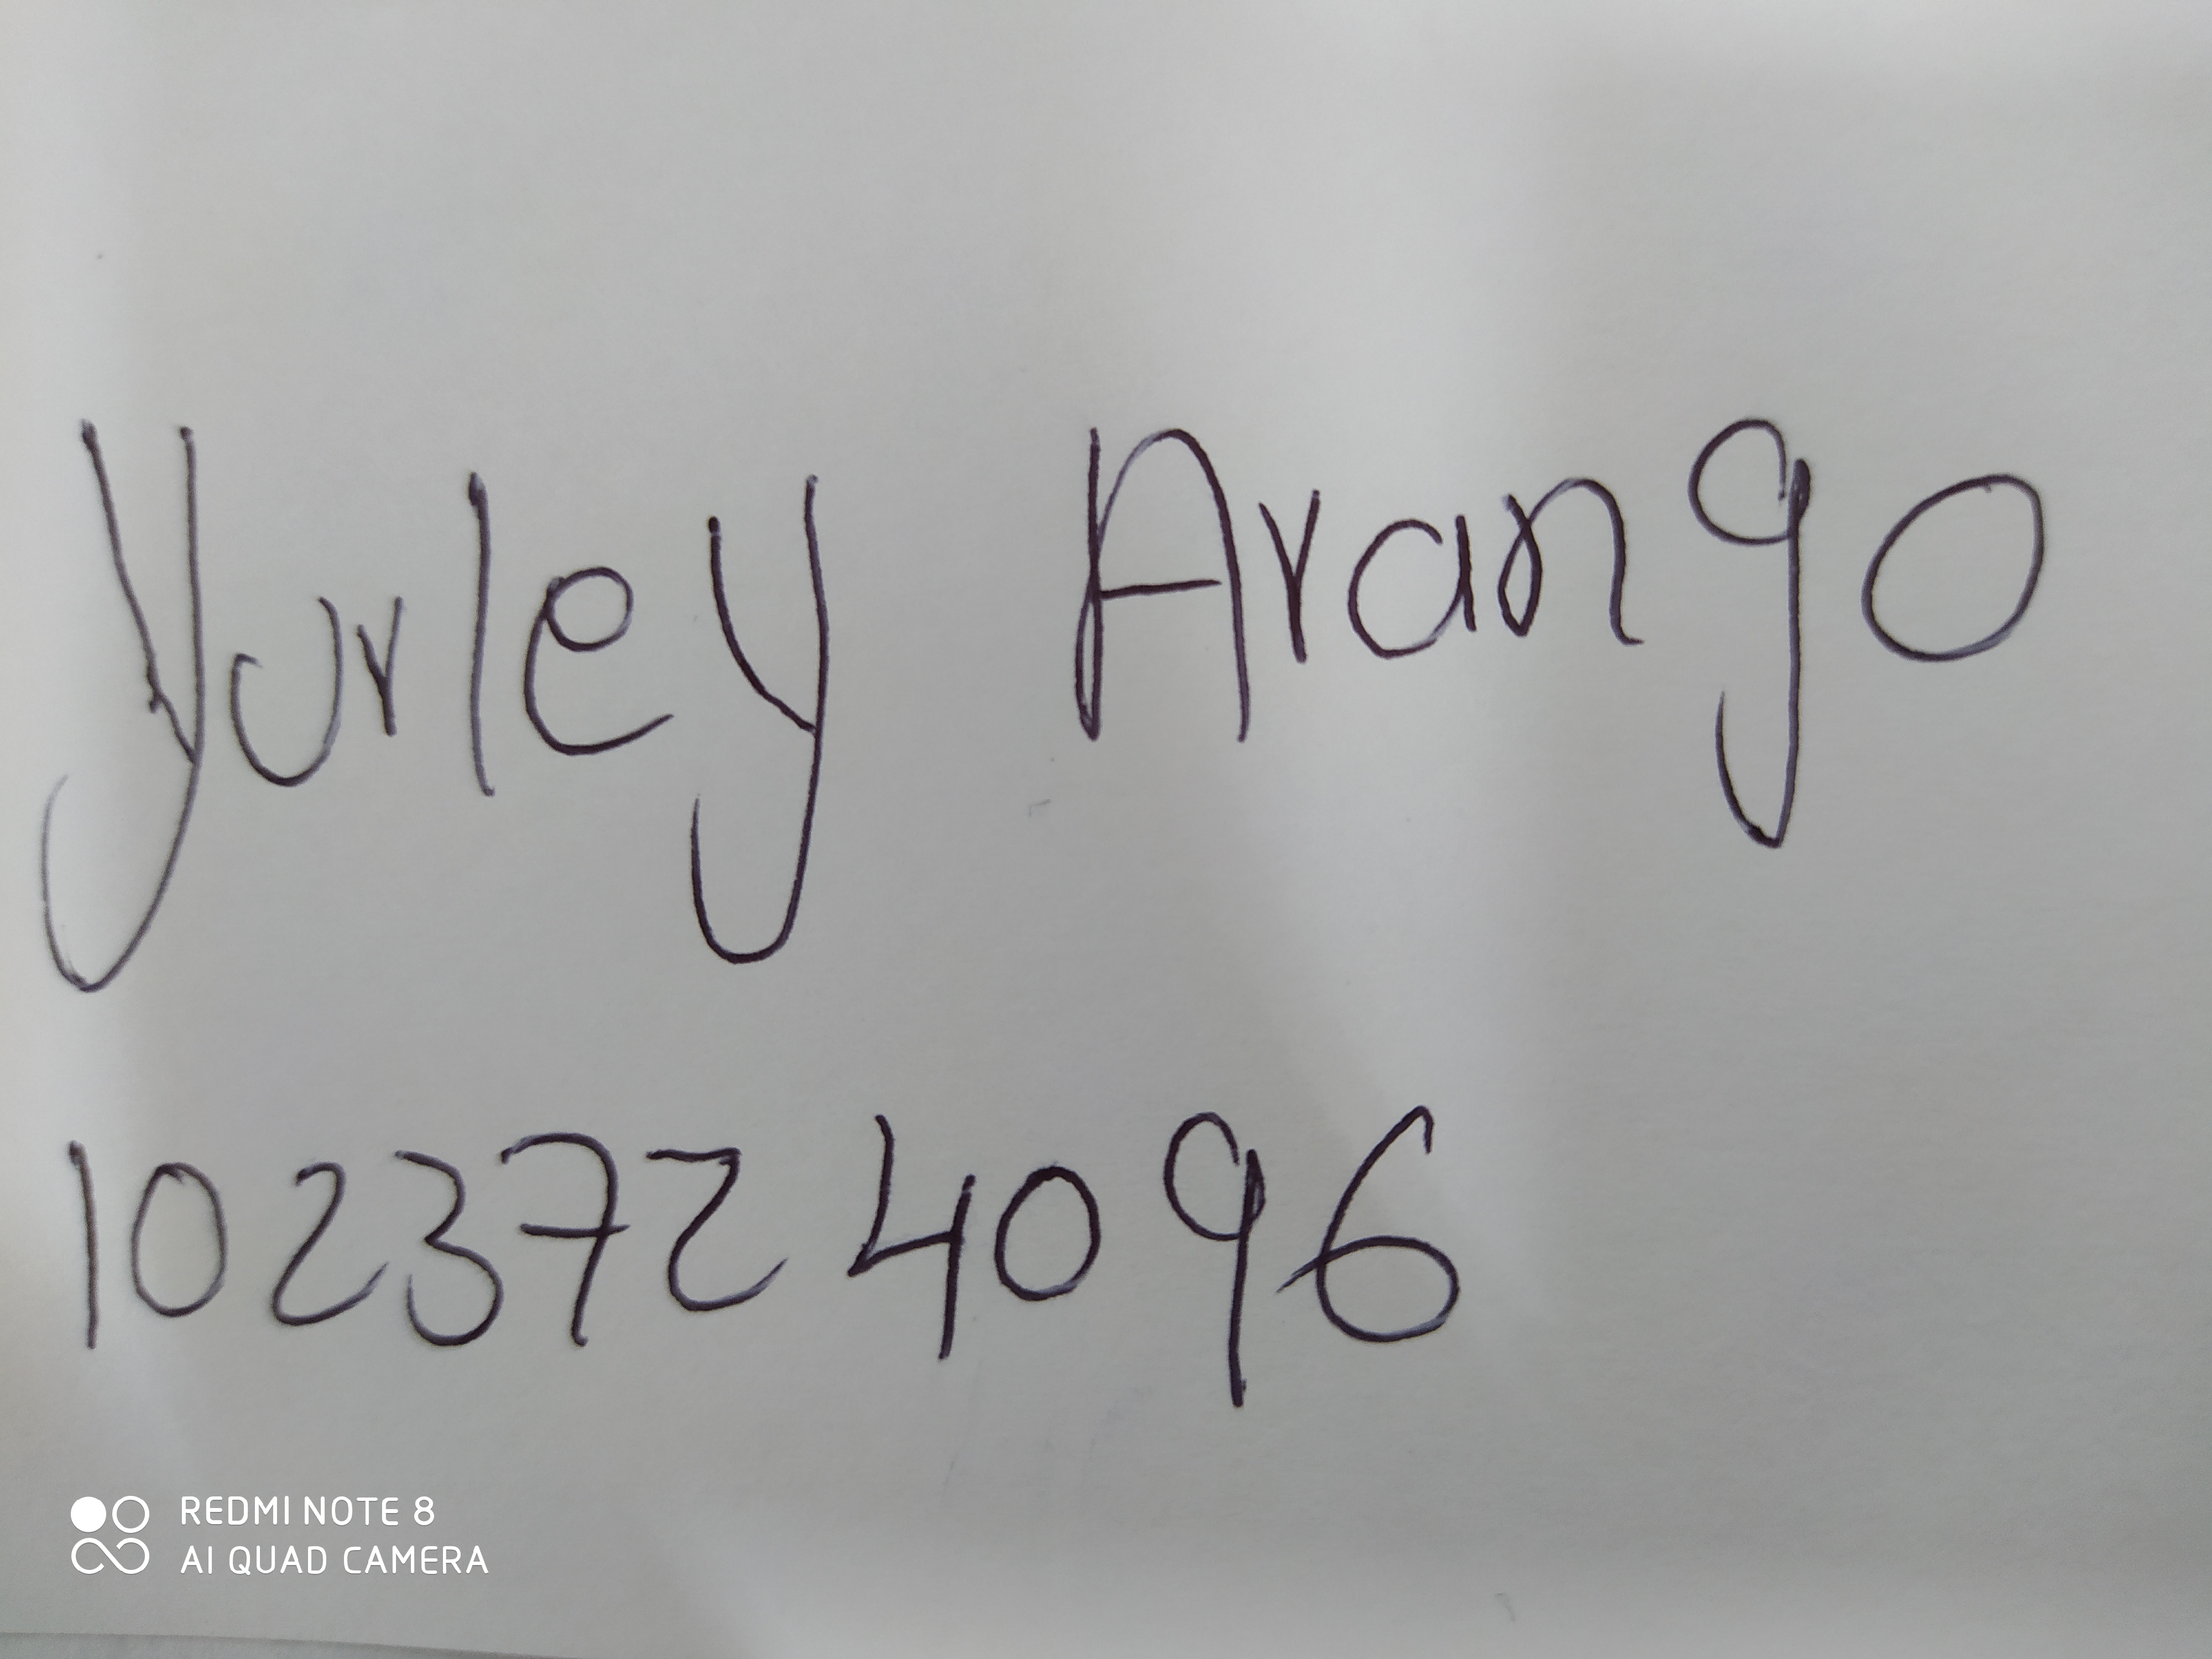 Yurley Arango
1023724096
REDMI NOTE 8
AI QUAD CAMERA